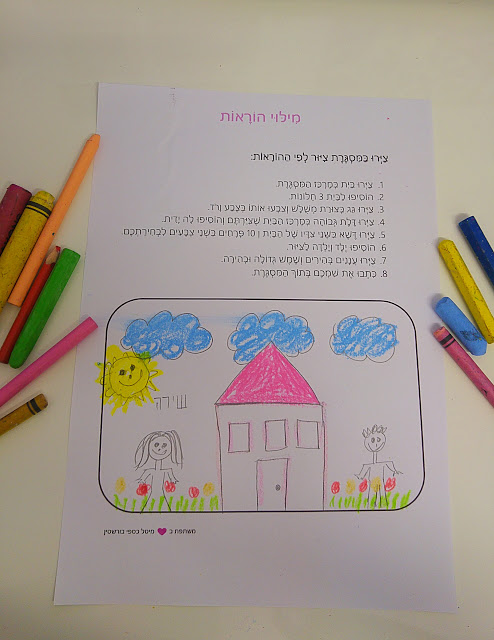 מִילּוּי הוֹרָאוֹת
צַיְּרוּ בַּמִּסְגֶּרֶת צִיּוּר לְפִי הַהוֹרָאוֹת:
1. צַיְּרוּ בַּיִת בְּמֶרְכַּז הַמִּסְגֶּרֶת.
2. הוֹסִיפוּ לַבַּיִת 3 חַלּוֹנוֹת.
3. צַיְּרוּ גַּג בְּצוּרַת מְשֻׁלָּשׁ וְצִבְעוּ אוֹתוֹ בְּצֶבַע וָרֹד.
4. צַיְּרוּ דֶּלֶת גְּבוֹהָה בְּמֶרְכַּז הַבַּיִת שֶׁצִּיַּרְתֶּם וְהוֹסִיפוּ לָהּ יָדִית.
5. צַיְּרוּ דֶּשֶׁא בִּשְׁנֵי צִדָּיו שֶׁל הַבַּיִת וְ 10 פְּרָחִים בִּשְׁנֵי צְבָעִים לִבְחִירַתְכֶם.
6. הוֹסִיפוּ יֶלֶד וְיַלְדָּה לַצִּיּוּר.
7. צַיְּרוּ עֲנָנִים בְּהִירִים וְשֶׁמֶשׁ גְּדוֹלָה וּבְהִירָה.
8. כִּתְבוּ אֶת שִׁמְכֶם בְּתוֹךְ הַמִּסְגֶּרֶת.
שירה
משתפת ב ♥ מיטל כספי בורשטין